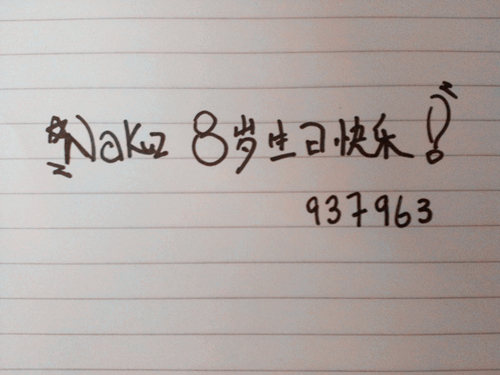 Nakuz 8岁生日快乐!
937963